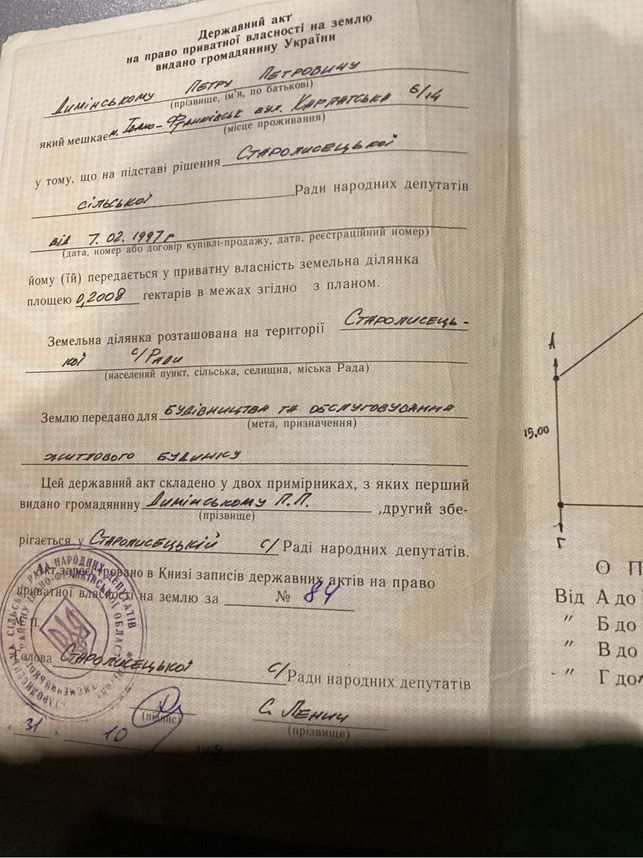 Державний акт
на право приватної власності на землю
видано громадянину України
Димінському Петру Петровичу
(прізвище, ім'я, по батькові)
який мешкає м. Івано-Франківськ вул. Карпатська 6/14
(місце проживання)
у тому, що на підставі рішення Старолисецької
сільської Ради народних депутатів
від 7.02.1997р
(дата, номер або договір купівлі-продажу, дата, реєстраційний номер)
йому (їй) передається у приватну власність земельна ділянка
площею 0,2008 гектарів в межах згідно з планом.
Земельна ділянка розташована на території Старолисець-
кої с/Ради
(населений пункт, сільська, селищна, міська Рада)
Землю передано для будівництва та обслуговування
(мета, призначення)
житлового будинку
Цей державний акт складено у двох примірниках, з яких перший
видано громадянину Димінському П.П. ,другий збе-
(прізвище)
рігається у Старолисецькій с/ Раді народних депутатів.
Акт зареєстровано в Книзі записів державних актів на право
приватної власності на землю за № 84
М.П.
Голова Старолисецької с/ Ради народних депутатів
С. Ленич
(підпис) (прізвище)
" 31 " 10
А
15,00
Г
О П
Від А до
" Б до
" В до
" Г до